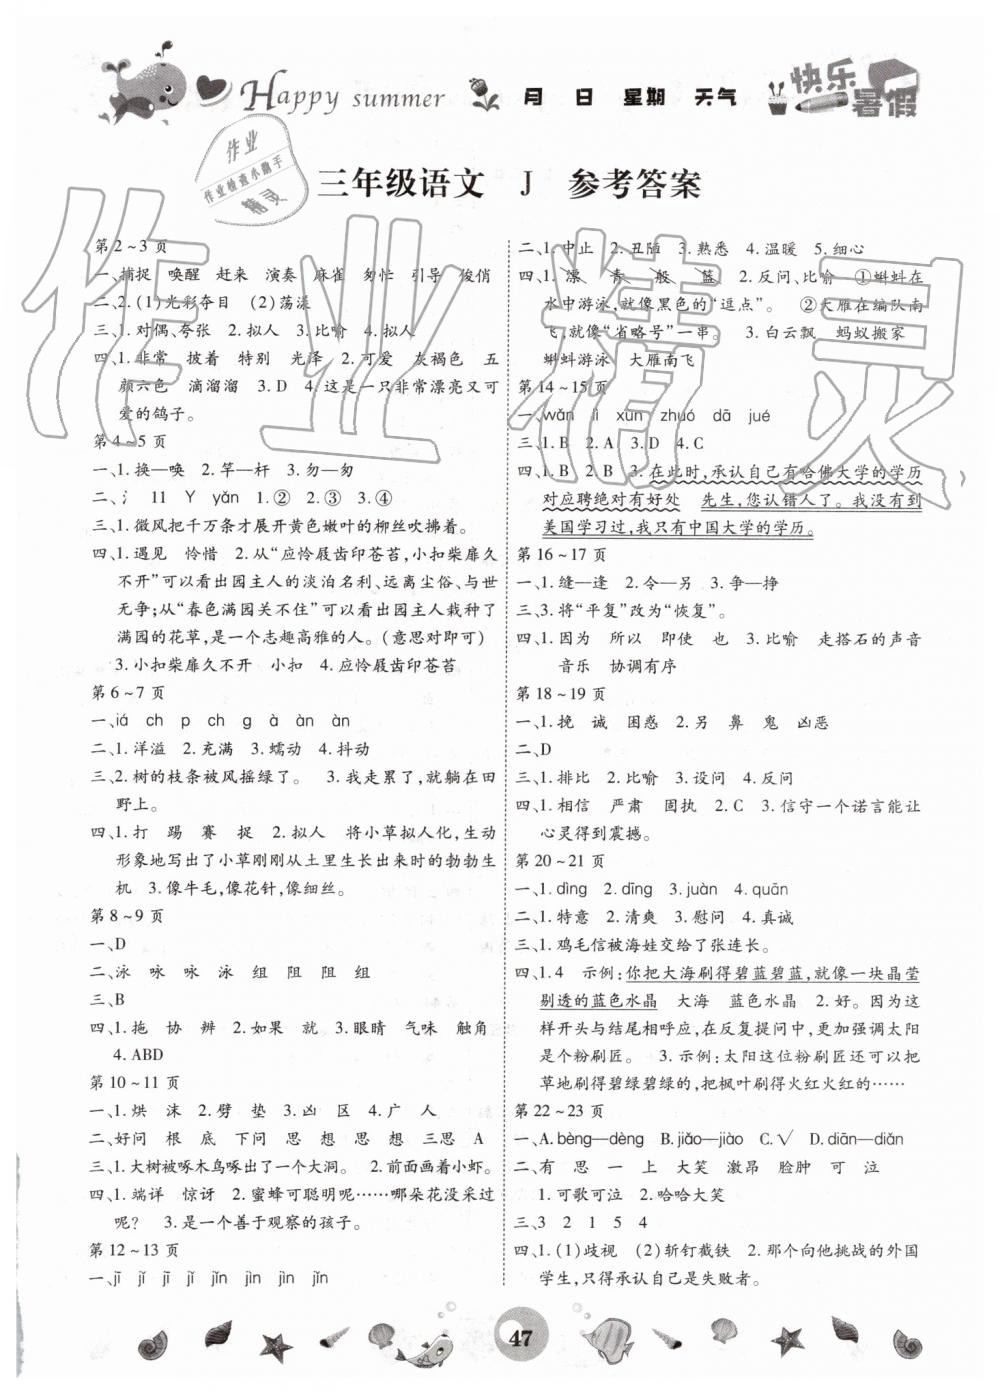 Happy summer 月 日 星期 天气 快乐暑假
作业
作业检查小助手
精灵
三年级语文 J 参考答案
第2~3页
一、捕捉 唤醒 赶来 演奏 麻雀 匆忙 引导 俊俏
二、2.(1)光彩夺目 (2)荡漾
三、1.对偶、夸张 2.拟人 3.比喻 4.拟人
四、1.非常 披着 特别 光泽 2.可爱 灰褐色 五
颜六色 滴溜溜 3.D 4.这是一只非常漂亮又可
爱的鸽子。
第4~5页
一、1.换—唤 2.竿—杆 3.匆—匀
二、氵 11 Y yǎn 1.② 2.③ 3.④
三、1.微风把千万条才展开黄色嫩叶的柳丝吹拂着。
四、1.遇见 怜惜 2.从“应怜屐齿印苍苔,小扣柴扉久
不开”可以看出园主人的淡泊名利、远离尘俗、与世
无争;从“春色满园关不住”可以看出园主人栽种了
满园的花草,是一个志趣高雅的人。(意思对即可)
3.小扣柴扉久不开 小扣 4.应怜屐齿印苍苔
第6~7页
一、iá ch p ch g à àn àn
二、1.洋溢 2.充满 3.蠕动 4.抖动
三、2.树的枝条被风摇绿了。 3.我走累了,就躺在田
野上。
四、1.打 踢 赛 捉 2.拟人 将小草拟人化,生动
形象地写出了小草刚刚从土里生长出来时的勃勃生
机 3.像牛毛,像花针,像细丝。
第8~9页
一、D
二、泳 咏 咏 泳 组 阻 阻 组
三、B
四、1.拖 协 辨 2.如果 就 3.眼睛 气味 触角
4.ABD
第10~11页
一、1.烘 沫 2.劈 垫 3.凶 区 4.广 人
二、好问 根 底 下问 思 想 思 想 三思 A
三、1.大树被啄木鸟啄出了一个大洞。 2.前面画着小虾。
四、1.端详 惊讶 2.蜜蜂可聪明呢……哪朵花没采过
呢? 3.是一个善于观察的孩子。
第12~13页
一、jǐ jǐ jī jī jìn jìn jǐn
二、1.中止 2.丑陋 3.熟悉 4.温暖 5.细心
四、1.漂 青 般 蓝 2.反问、比喻 ①蝌蚪在
水中游泳,就像黑色的“逗点”。 ②大雁在编队南
飞,就像“省略号”一串。 3.白云飘 蚂蚁搬家
蝌蚪游泳 大雁南飞
第14~15页
一、wǎn jì xūn zhuó dā jué
三、1.B 2.A 3.D 4.C
四、1.B 2.B 3.在此时,承认自己有哈佛大学的学历
对应聘绝对有好处 先生,您认错人了。我没有到
美国学习过,我只有中国大学的学历。
第16~17页
一、1.缝—逢 2.令—另 3.争—挣
三、3.将“平复”改为“恢复”。
四、1.因为 所以 即使 也 3.比喻 走搭石的声音
音乐 协调有序
第18~19页
一、1.挽 诚 困惑 2.另 鼻 鬼 凶恶
二、D
三、1.排比 2.比喻 3.设问 4.反问
四、1.相信 严肃 固执 2.C 3.信守一个诺言能让
心灵得到震撼。
第20~21页
一、1.dìng 2.dīng 3.juàn 4.quān
二、1.特意 2.清爽 3.慰问 4.真诚
三、1.鸡毛信被海娃交给了张连长。
四、1.4 示例:你把大海刷得碧蓝碧蓝,就像一块晶莹
剔透的蓝色水晶 大海 蓝色水晶 2.好。因为这
样开头与结尾相呼应,在反复提问中,更加强调太阳
是个粉刷匠。 3.示例:太阳这位粉刷匠还可以把
草地刷得碧绿碧绿的,把枫叶刷得火红火红的……
第22~23页
一、A.bèng—dèng B.jiǎo—jiào C.√ D.diān—diǎn
二、有 思 一 上 大笑 激昂 脸肿 可 泣
1.可歌可泣 2.哈哈大笑
三、3 2 1 5 4
四、1.(1)歧视 (2)斩钉截铁 2.那个向他挑战的外国
学生,只得承认自己是失败者。
47
作业精灵